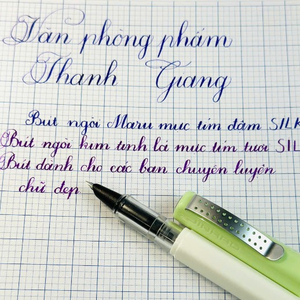 Văn phòng phẩm
Thanh Giang
Bút ngòi Maru mực tím đậm SILK
Bút ngòi kim tinh là mực tím tươi SIL
Bút dành cho các bạn chuyên luyện
chữ đẹp